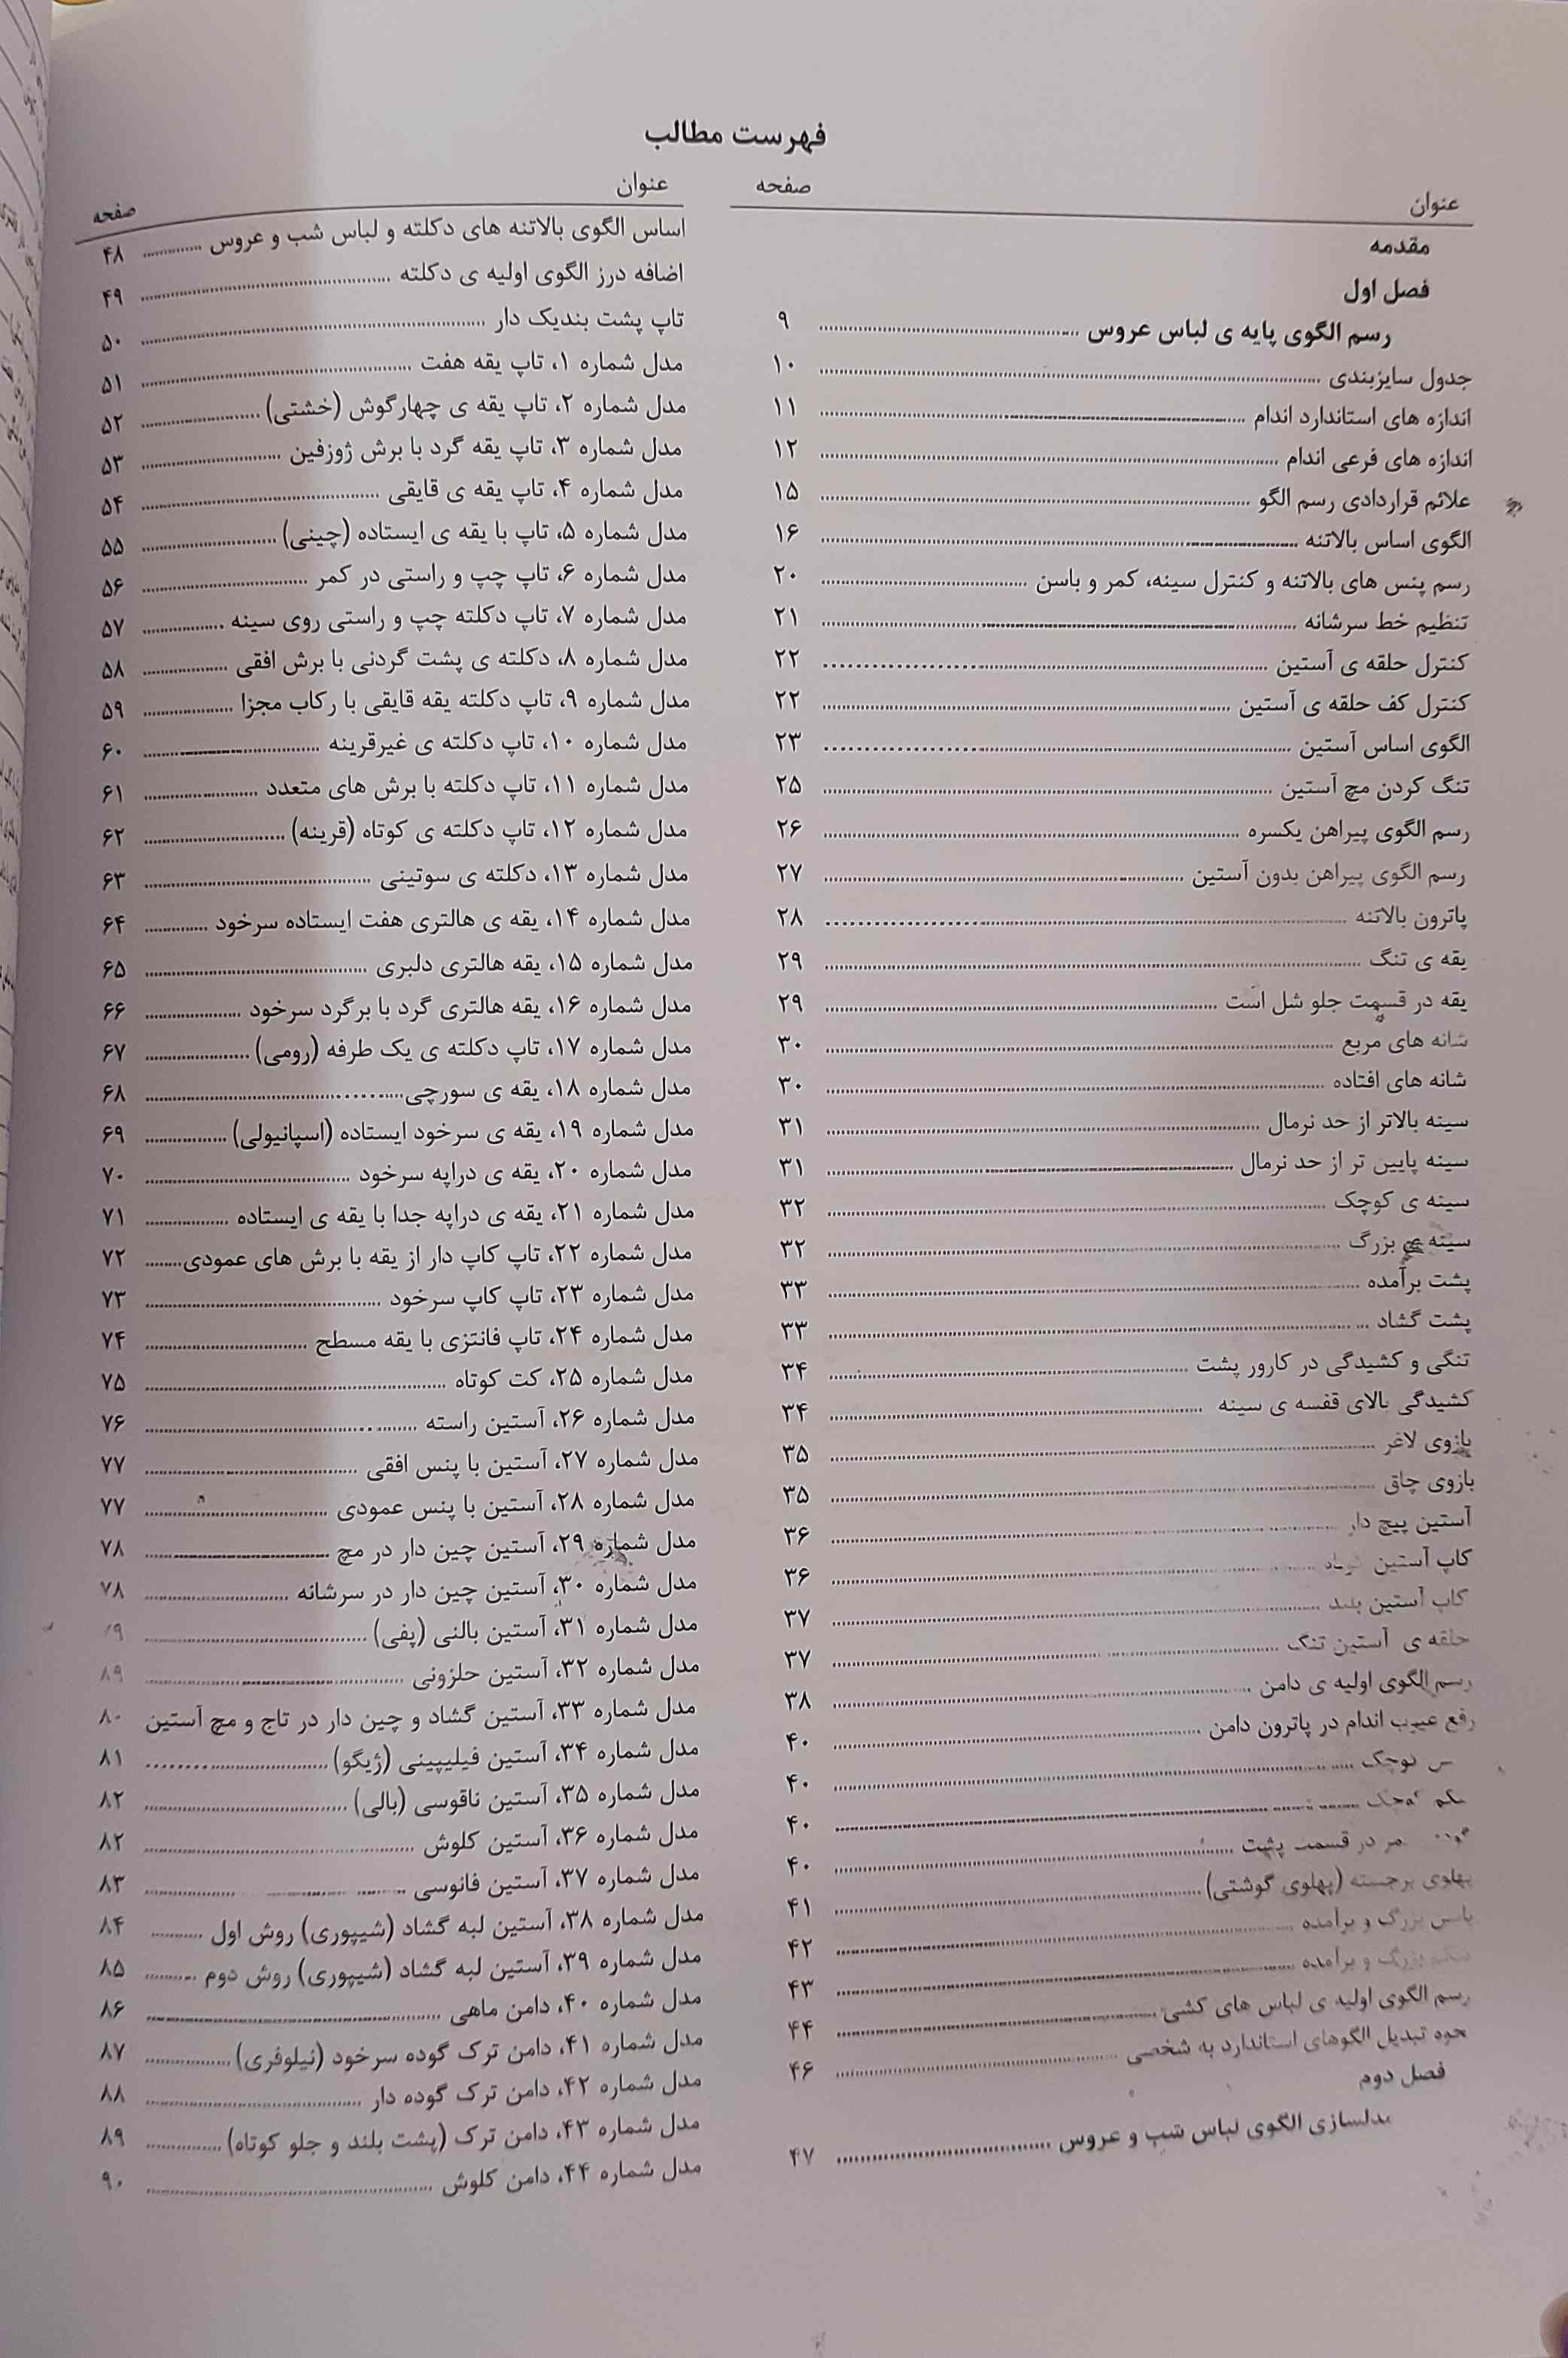 فهرست مطالب
عنوان صفحه
مقدمه
فصل اول
رسم الگوی پایه ی لباس عروس ۹
جدول سایزبندی ۱۰
اندازه های استاندارد اندام ۱۱
اندازه های فرعی اندام ۱۲
علائم قراردادی رسم الگو ۱۵
الگوی اساس بالاتنه ۱۶
رسم پنس های بالاتنه و کنترل سینه، کمر و باسن ۲۰
تنظیم خط سرشانه ۲۱
کنترل حلقه ی آستین ۲۲
کنترل کف حلقه ی آستین ۲۲
الگوی اساس آستین ۲۳
تنگ کردن مچ آستین ۲۵
رسم الگوی پیراهن یکسره ۲۶
رسم الگوی پیراهن بدون آستین ۲۷
پاترون بالاتنه ۲۸
یقه ی تنگ ۲۹
یقه در قسمت جلو شل است ۲۹
شانه های مربع ۳۰
شانه های افتاده ۳۰
سینه بالاتر از حد نرمال ۳۱
سینه پایین تر از حد نرمال ۳۱
سینه ی کوچک ۳۲
سینه ی بزرگ ۳۲
پشت برآمده ۳۳
پشت گشاد ۳۳
تنگی و کشیدگی در کارور پشت ۳۴
کشیدگی بالای قفسه ی سینه ۳۴
بازوی لاغر ۳۵
بازوی چاق ۳۵
آستین پیچ دار ۳۶
کاپ آستین ۳۶
کاپ آستین بلند ۳۷
حلقه ی آستین تنگ ۳۷
رسم الگوی اولیه ی دامن ۳۸
رفع عیوب اندام در پاترون دامن ۴۰
کوچک ۴۰
۴۰
در قسمت پشت ۴۰
پهلوی برجسته (پهلوی گوشتی) ۴۱
باسن بزرگ و برآمده ۴۲
شکم بزرگ و برآمده ۴۳
رسم الگوی اولیه ی لباس های کشی ۴۴
نحوه تبدیل الگوهای استاندارد به شخصی ۴۶
فصل دوم
مدلسازی الگوی لباس شب و عروس ۴۷
عنوان صفحه
اساس الگوی بالاتنه های دکلته و لباس شب و عروس ۴۸
اضافه درز الگوی اولیه ی دکلته ۴۹
تاپ پشت بندیک دار ۵۰
مدل شماره ۱، تاپ یقه هفت ۵۱
مدل شماره ۲، تاپ یقه ی چهارگوش (خشتی) ۵۲
مدل شماره ۳، تاپ یقه گرد با برش ژوزفین ۵۳
مدل شماره ۴، تاپ یقه ی قایقی ۵۴
مدل شماره ۵، تاپ با یقه ی ایستاده (چینی) ۵۵
مدل شماره ۶، تاپ چپ و راستی در کمر ۵۶
مدل شماره ۷، تاپ دکلته چپ و راستی روی سینه ۵۷
مدل شماره ۸، دکلته ی پشت گردنی با برش افقی ۵۸
مدل شماره ۹، تاپ دکلته یقه قایقی با رکاب مجزا ۵۹
مدل شماره ۱۰، تاپ دکلته ی غیرقرینه ۶۰
مدل شماره ۱۱، تاپ دکلته با برش های متعدد ۶۱
مدل شماره ۱۲، تاپ دکلته ی کوتاه (قرینه) ۶۲
مدل شماره ۱۳، دکلته ی سوتینی ۶۳
مدل شماره ۱۴، یقه ی هالتری هفت ایستاده سرخود ۶۴
مدل شماره ۱۵، یقه هالتری دلبری ۶۵
مدل شماره ۱۶، یقه هالتری گرد با برگرد سرخود ۶۶
مدل شماره ۱۷، تاپ دکلته ی یک طرفه (رومی) ۶۷
مدل شماره ۱۸، یقه ی سورچی ۶۸
مدل شماره ۱۹، یقه ی سرخود ایستاده (اسپانیولی) ۶۹
مدل شماره ۲۰، یقه ی دراپه سرخود ۷۰
مدل شماره ۲۱، یقه ی دراپه جدا با یقه ی ایستاده ۷۱
مدل شماره ۲۲، تاپ کاپ دار از یقه با برش های عمودی ۷۲
مدل شماره ۲۳، تاپ کاپ سرخود ۷۳
مدل شماره ۲۴، تاپ فانتزی با یقه مسطح ۷۴
مدل شماره ۲۵، کت کوتاه ۷۵
مدل شماره ۲۶، آستین راسته ۷۶
مدل شماره ۲۷، آستین با پنس افقی ۷۷
مدل شماره ۲۸، آستین با پنس عمودی ۷۷
مدل شماره ۲۹، آستین چین دار در مچ ۷۸
مدل شماره ۳۰، آستین چین دار در سرشانه ۷۸
مدل شماره ۳۱، آستین بالنی (پفی) ۷۹
مدل شماره ۳۲، آستین حلزونی ۸۹
مدل شماره ۳۳، آستین گشاد و چین دار در تاج و مچ آستین ۸۰
مدل شماره ۳۴، آستین فیلیپینی (ژیگو) ۸۱
مدل شماره ۳۵، آستین ناقوسی (بالی) ۸۲
مدل شماره ۳۶، آستین کلوش ۸۲
مدل شماره ۳۷، آستین فانوسی ۸۳
مدل شماره ۳۸، آستین لبه گشاد (شیپوری) روش اول ۸۴
مدل شماره ۳۹، آستین لبه گشاد (شیپوری) روش دوم ۸۵
مدل شماره ۴۰، دامن ماهی ۸۶
مدل شماره ۴۱، دامن ترک گوده سرخود (نیلوفری) ۸۷
مدل شماره ۴۲، دامن ترک گوده دار ۸۸
مدل شماره ۴۳، دامن ترک (پشت بلند و جلو کوتاه) ۸۹
مدل شماره ۴۴، دامن کلوش ۹۰